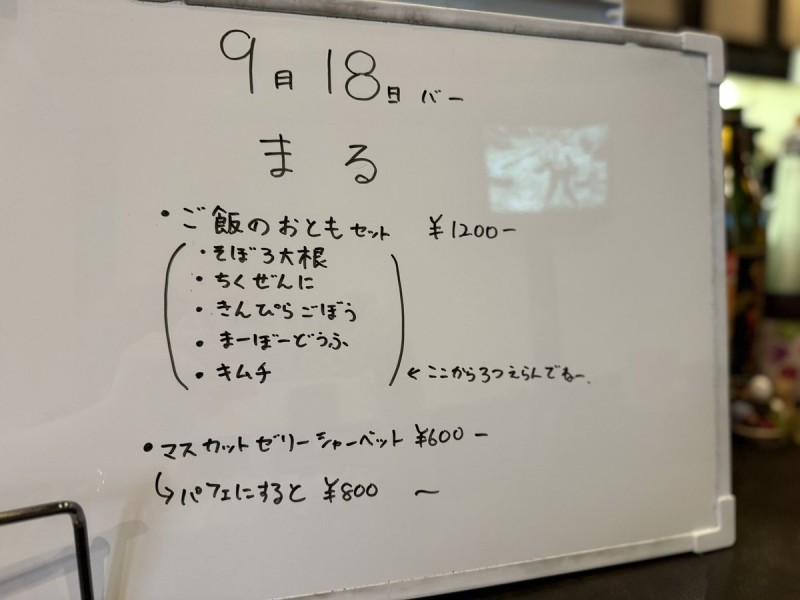 9月18日 バー
まる
・ご飯のおともセット ¥1200-
・そぼろ大根
・ちくぜんに
・きんぴらごぼう
・まーぼーどうふ
・キムチ ←ここから3つえらんでねー.
・マスカットゼリーシャーベット ¥600-
↳パフェにすると ¥800 ~